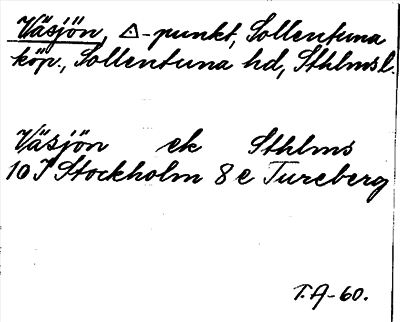 Väsjön, △-punkt, Sollentuna
köp., Sollentuna hd, Sthlmsl.
Väsjön ek Sthlms
10 I Stockholm 8 e Tureberg
T.A-60.